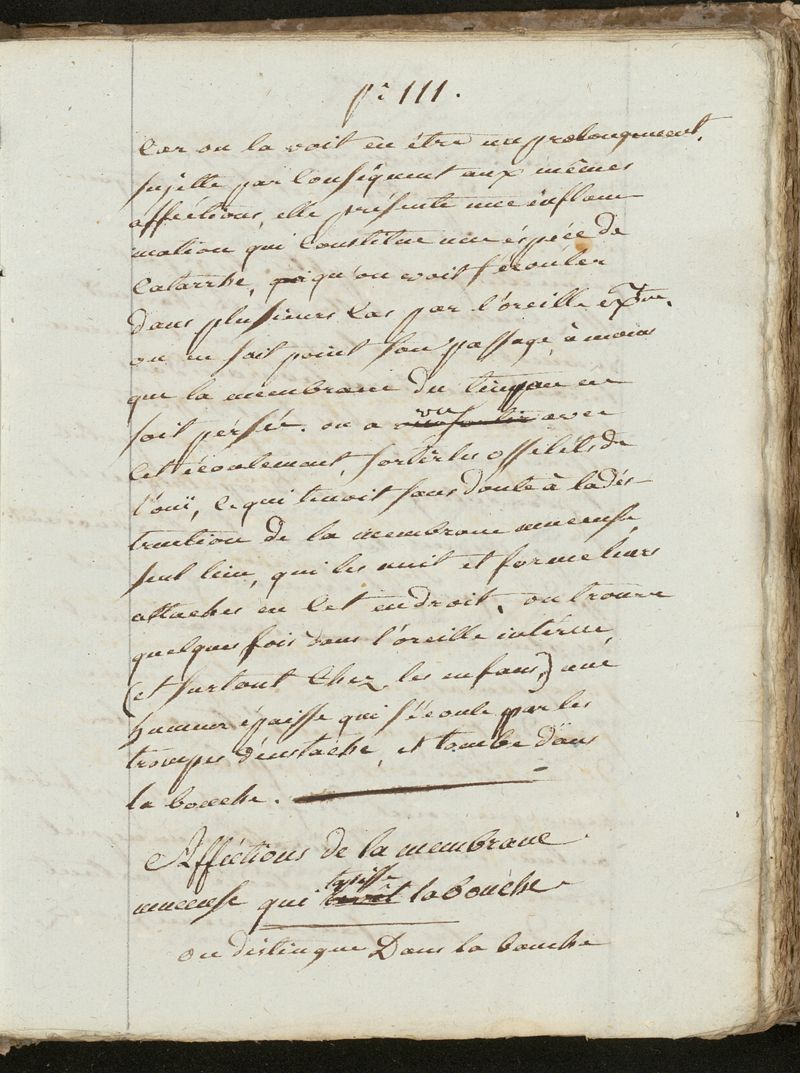 pe 111.
Car on la voit en être un prolongement.
sujette par Conséquent aux mêmes
afféctions, elle présente une inflam
mation qui Constitue une éspéce de
Catarrhe, qu'on voit s'écouler
dans plusieurs Cas par l'oreille extne.
on en sait point son passage, à moins
que la membrane du timpan en
soit pérsée. on a vu avec
Cet écoulement, sortir les osselets de
l'ouï, Ce qui tenoit sans doute à la dés-
truction de la membrane muceuse
seul lien, qui les unit et forme leurs
attaches en Cet endroit. on trouve
quelques fois dans l'oreille intérne,
(et surtout Chez les enfans,) une
humeur épaisse qui s'écoule par les
trompes d'eustache, et tombe dans
la bouche.
Afféctions de la membrane
muceuse qui tapisse la bouche
on distingue Dans la bouche